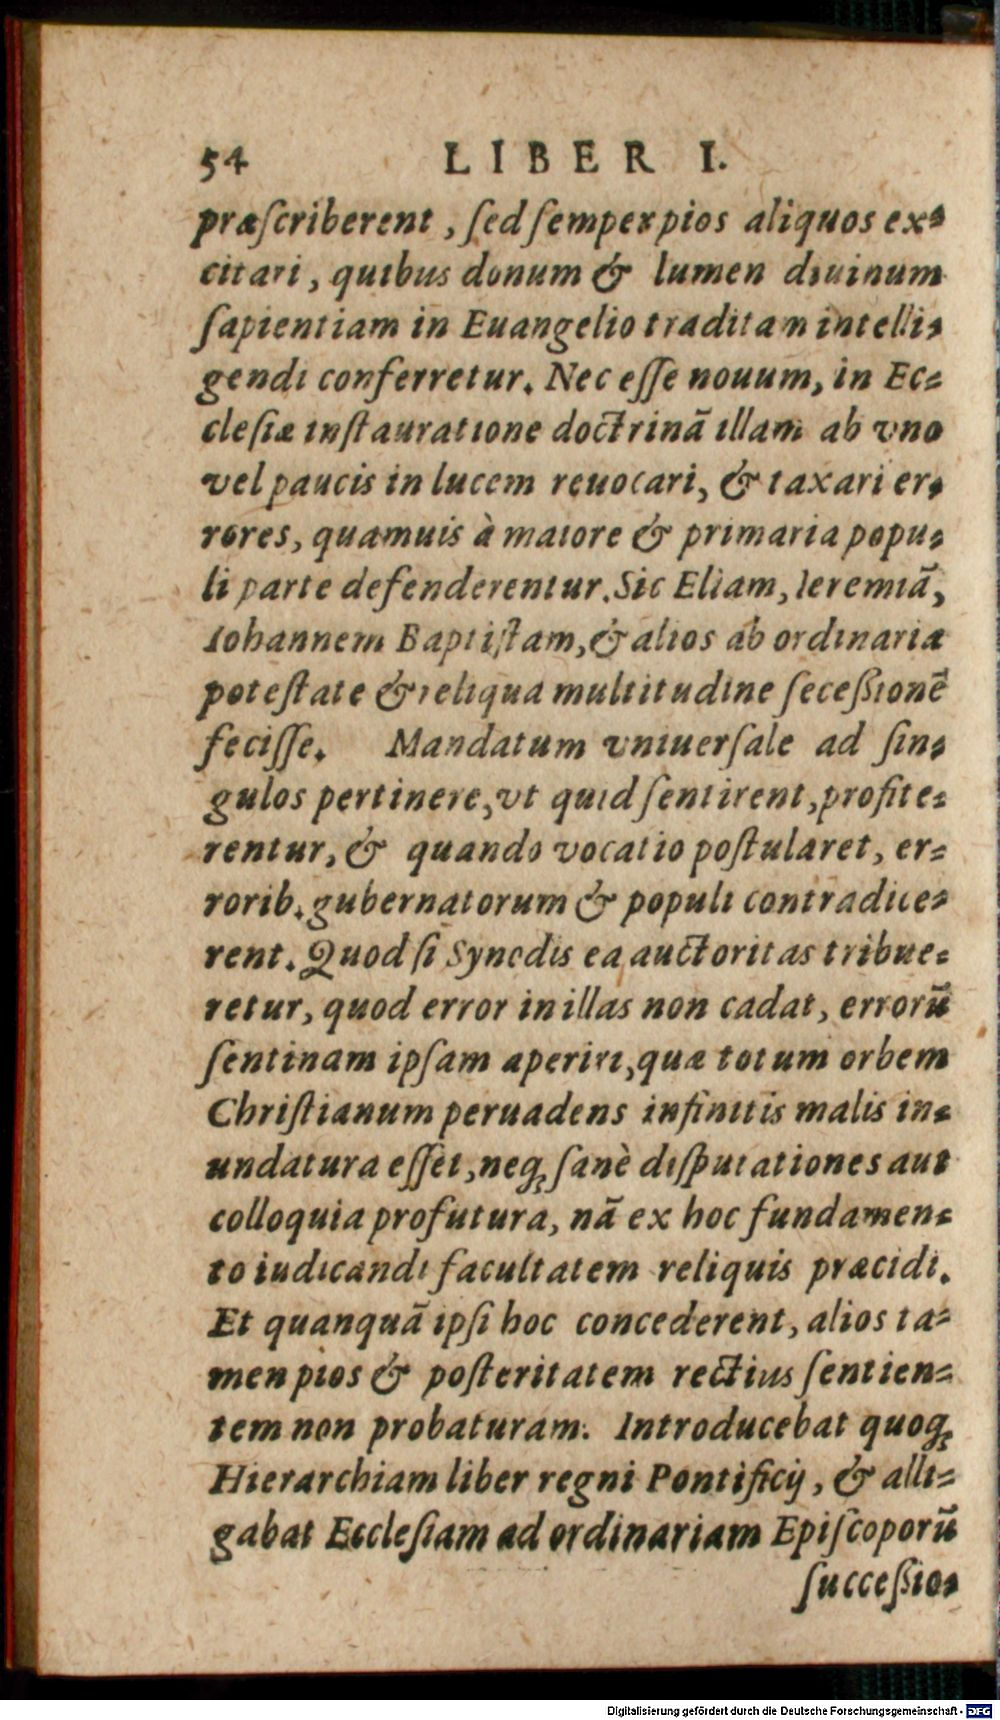 54 LIBER I.
præſcriberent, ſed ſemper pios aliquos ex-
citari, quibus donum & lumen diuinum
ſapientiam in Euangelio traditam intelli-
gendi conferretur. Nec eſſe nouum, in Ec-
cleſiæ inſtauratione doctrinã illam ab vno
vel paucis in lucem reuocari, & taxari er-
rores, quamuis à maiore & primaria popu-
li parte defenderentur. Sic Eliam, Ieremiã,
Iohannem Baptiſtam, & alios ab ordinaria
poteſtate & reliqua multitudine ſeceßionẽ
feciſſe. Mandatum vniuerſale ad ſin-
gulos pertinere, vt quid ſentirent, profite-
rentur, & quando vocatio poſtularet, er-
rorib. gubernatorum & populi contradice-
rent. Quod ſi Synodis ea auctoritas tribue-
retur, quod error in illas non cadat, errorũ
ſentinam ipſam aperiri, quæ totum orbem
Chriſtianum peruadens infinitis malis in-
undatura eſſet, neq; ſanè diſputationes aut
colloquia profutura, nã ex hoc fundamen-
to iudicandi facultatem reliquis præcidi.
Et quanquã ipſi hoc concederent, alios ta-
men pios & poſteritatem rectius ſentien-
tem non probaturam. Introducebat quoq;
Hierarchiam liber regni Pontificij, & alli-
gabat Eccleſiam ad ordinariam Epiſcoporũ
ſucceßio-
Digitalisierung gefördert durch die Deutsche Forschungsgemeinschaft - DFG